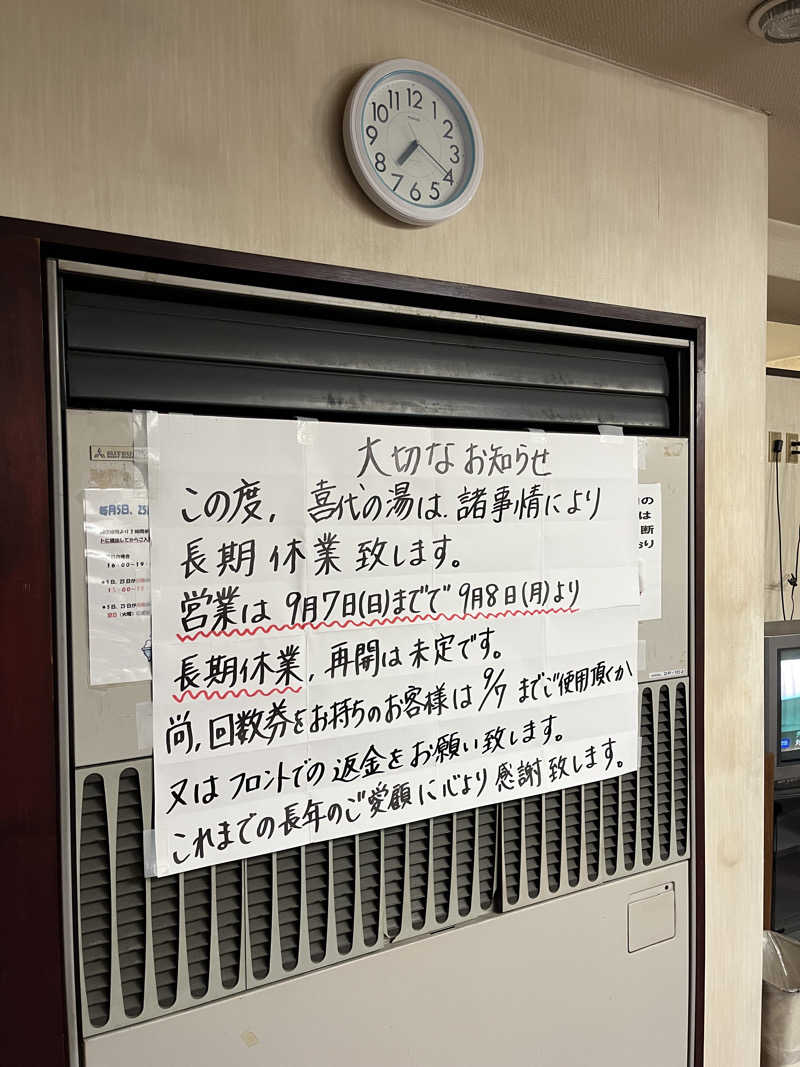 12
1
2
3
4
5
6
7
8
9
10
11
大切なお知らせ
この度, 喜代の湯は、諸事情により
長期休業致します。
営業は 9月7日(日)までで 9月8日(月)より
長期休業, 再開は未定です。
尚, 回数券をお持ちのお客様は 9/7 までご使用頂くか
又はフロントでの返金をお願い致します。
これまでの長年のご愛顧に心より感謝致します。
毎月5日、25日
16:00~19
の
は
断